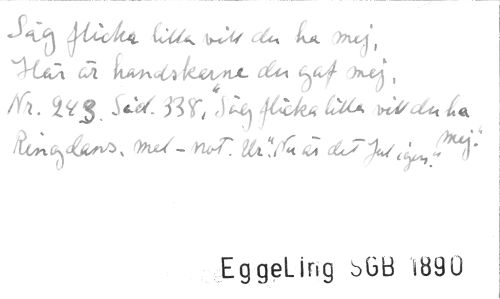 Säg flicka lilla vill du ha mej,
Här är handskarne du gaf mej,
Nr. 243. Sid. 338, "Säg flicka lilla vill du ha mej."
Ringdans. mel-not. Ur: "Nu är det Jul igen."
EggeLing SGB 1890